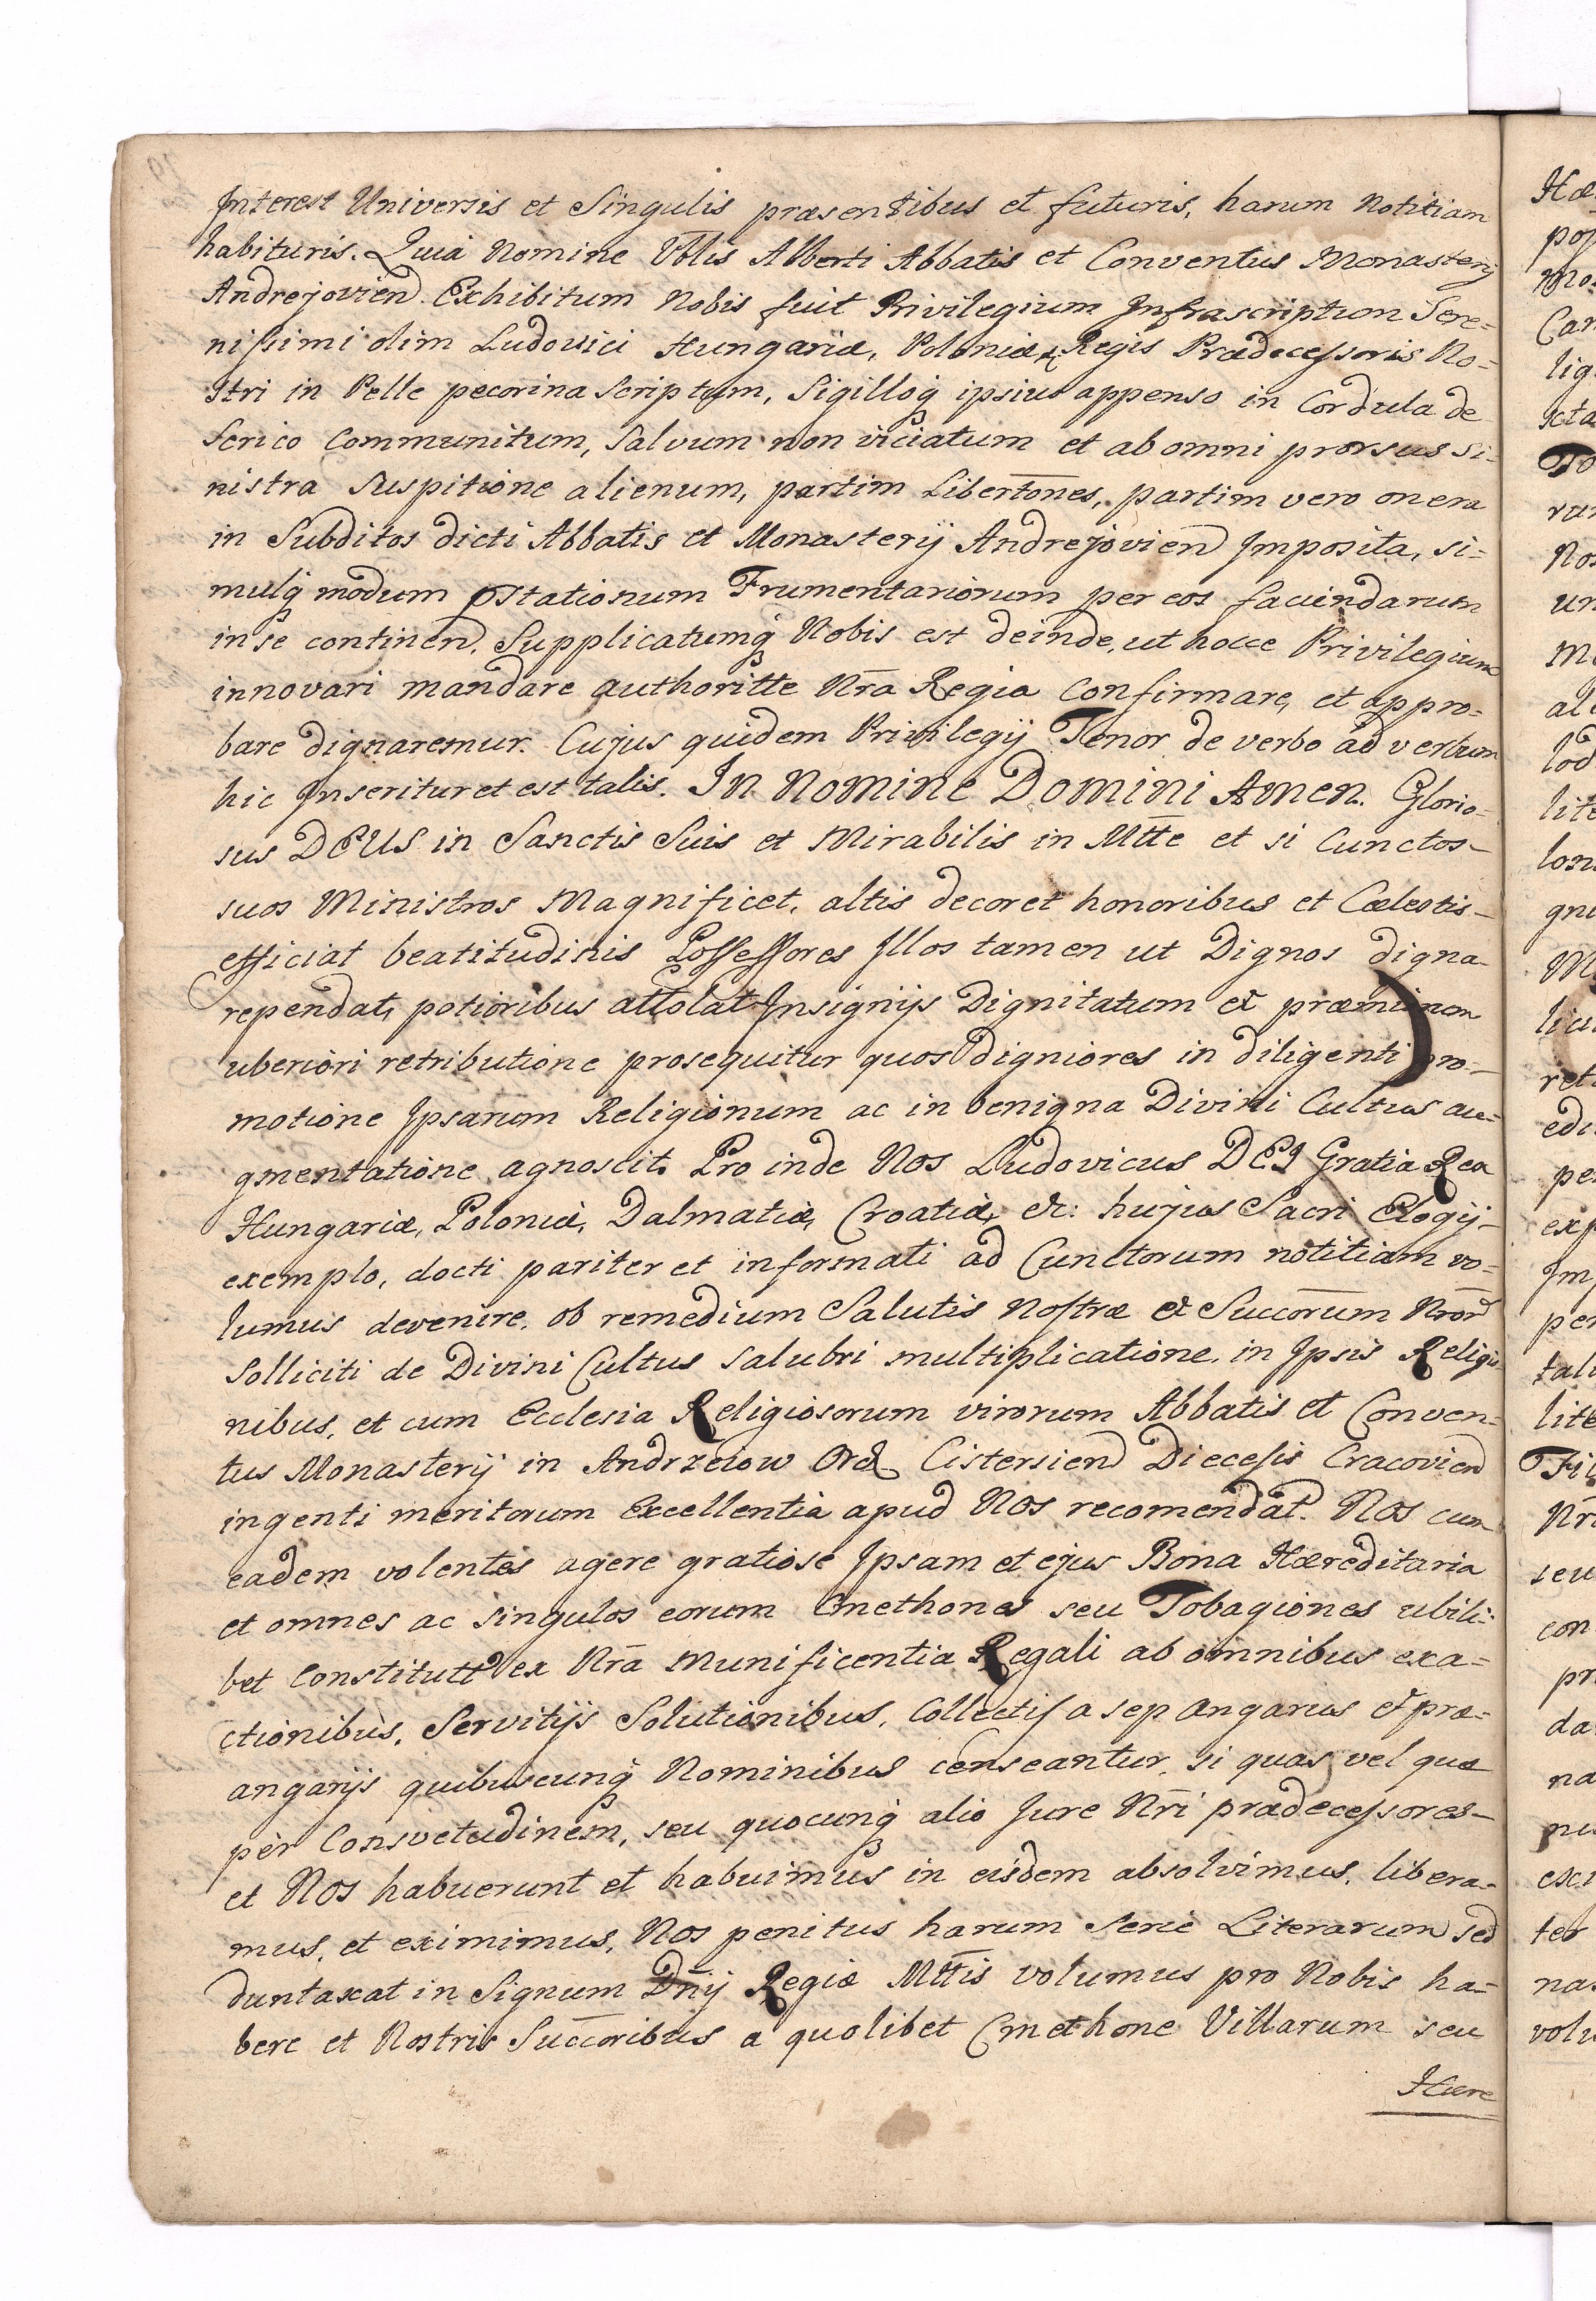 Interest Universis et Singulis præsentibus et futuris, harum Notitiam
habituris. Quia Nomine Vblis Alberti Abbatis et Conventus Monasterij
Andrejovien. Exhibitum Nobis fuit Privilegium Infrascriptum Sere=
nissimi olim Ludovici Hungariæ, Poloniæ & Regis Prædecessoris No=
stri in Pelle pecorina Scriptum, Sigilloq ipsius appenso in Cordula de
Serico Communitum, Salvum non viciatum et ab omni prorsus si=
nistra Suspitione alienum, partim Libertōnes, partim vero onera
in Subditos dicti Abbatis et Monasterÿ Andrejovien Imposita, si=
mulq modum pstationum Frumentariorum per eos faciendarum
in se continen, Supplicatumq Nobis est deinde, ut hocce Privilegium
innovari mandare authoritte Nrā Regia Confirmare, et appro=
bare dignaremur. Cujus quidem Privilegÿ Tenor de verbo ad verbum
hic Inseritur et est talis. In Nomine Domini Amen. Glorio=
sus DEUS in Sanctis Suis et Mirabilis in Mtte et si Cunctos
suos Ministros Magnificet, altis decoret honoribus et Cælestis
efficiat beatitudinis Possessores Illos tamen ut Dignos digna
rependat, potioribus attolat Insignÿs Dignitatum et præmiorum
uberiori retributione prosequitur quos digniores in diligenti pro=
motione Ipsarum Religionum ac in benigna Divini Cultus au=
gmentatione agnoscit. Pro inde Nos Ludovicus DEI Gratia Rex
Hungariæ, Poloniæ, Dalmatiæ, Croatiæ, &c: hujus Sacri Elogÿ
exemplo, docti pariter et informati ad Cunctorum notitiam vo=
lumus devenire, ob remedium Salutis Nostræ et Succorum Nror
Solliciti de Divini Cultus Salubri multiplicatione, in Ipsis Religio
nibus, et cum Ecclesia Religiosorum virorum Abbatis et Conven=
tus Monasterÿ in Andrzeiow Ord Cistersien Diecesis Cracovien
ingenti meritorum Excellentia apud Nos recomendat. Nos cum
eadem volentes agere gratiose Ipsam et ejus Bona Hæreditaria
et omnes ac singulos eorum Cmethones seu Tobagiones ubili=
bet Constitutt ex Nrā Munificentia Regali ab omnibus exa=
ctionibus, Servitÿs Solutionibus, Collectis a sep angarius et præ=
angarÿs quibuscunq Nominibus censeantur, si quas vel quæ
per Consvetudinem, seu quocunq alio Jure Nrī prædecessores
et Nos habuerunt et habuimus in eisdem absolvimus, libera=
mus, et eximimus, Nos penitus harum Serie Literarum sed
duntaxat in Signum Dnÿ Regiæ Mttis volumus pro Nobis ha=
bere et Nostris Succoribus a quolibet Cmethone Villarum seu
Hære